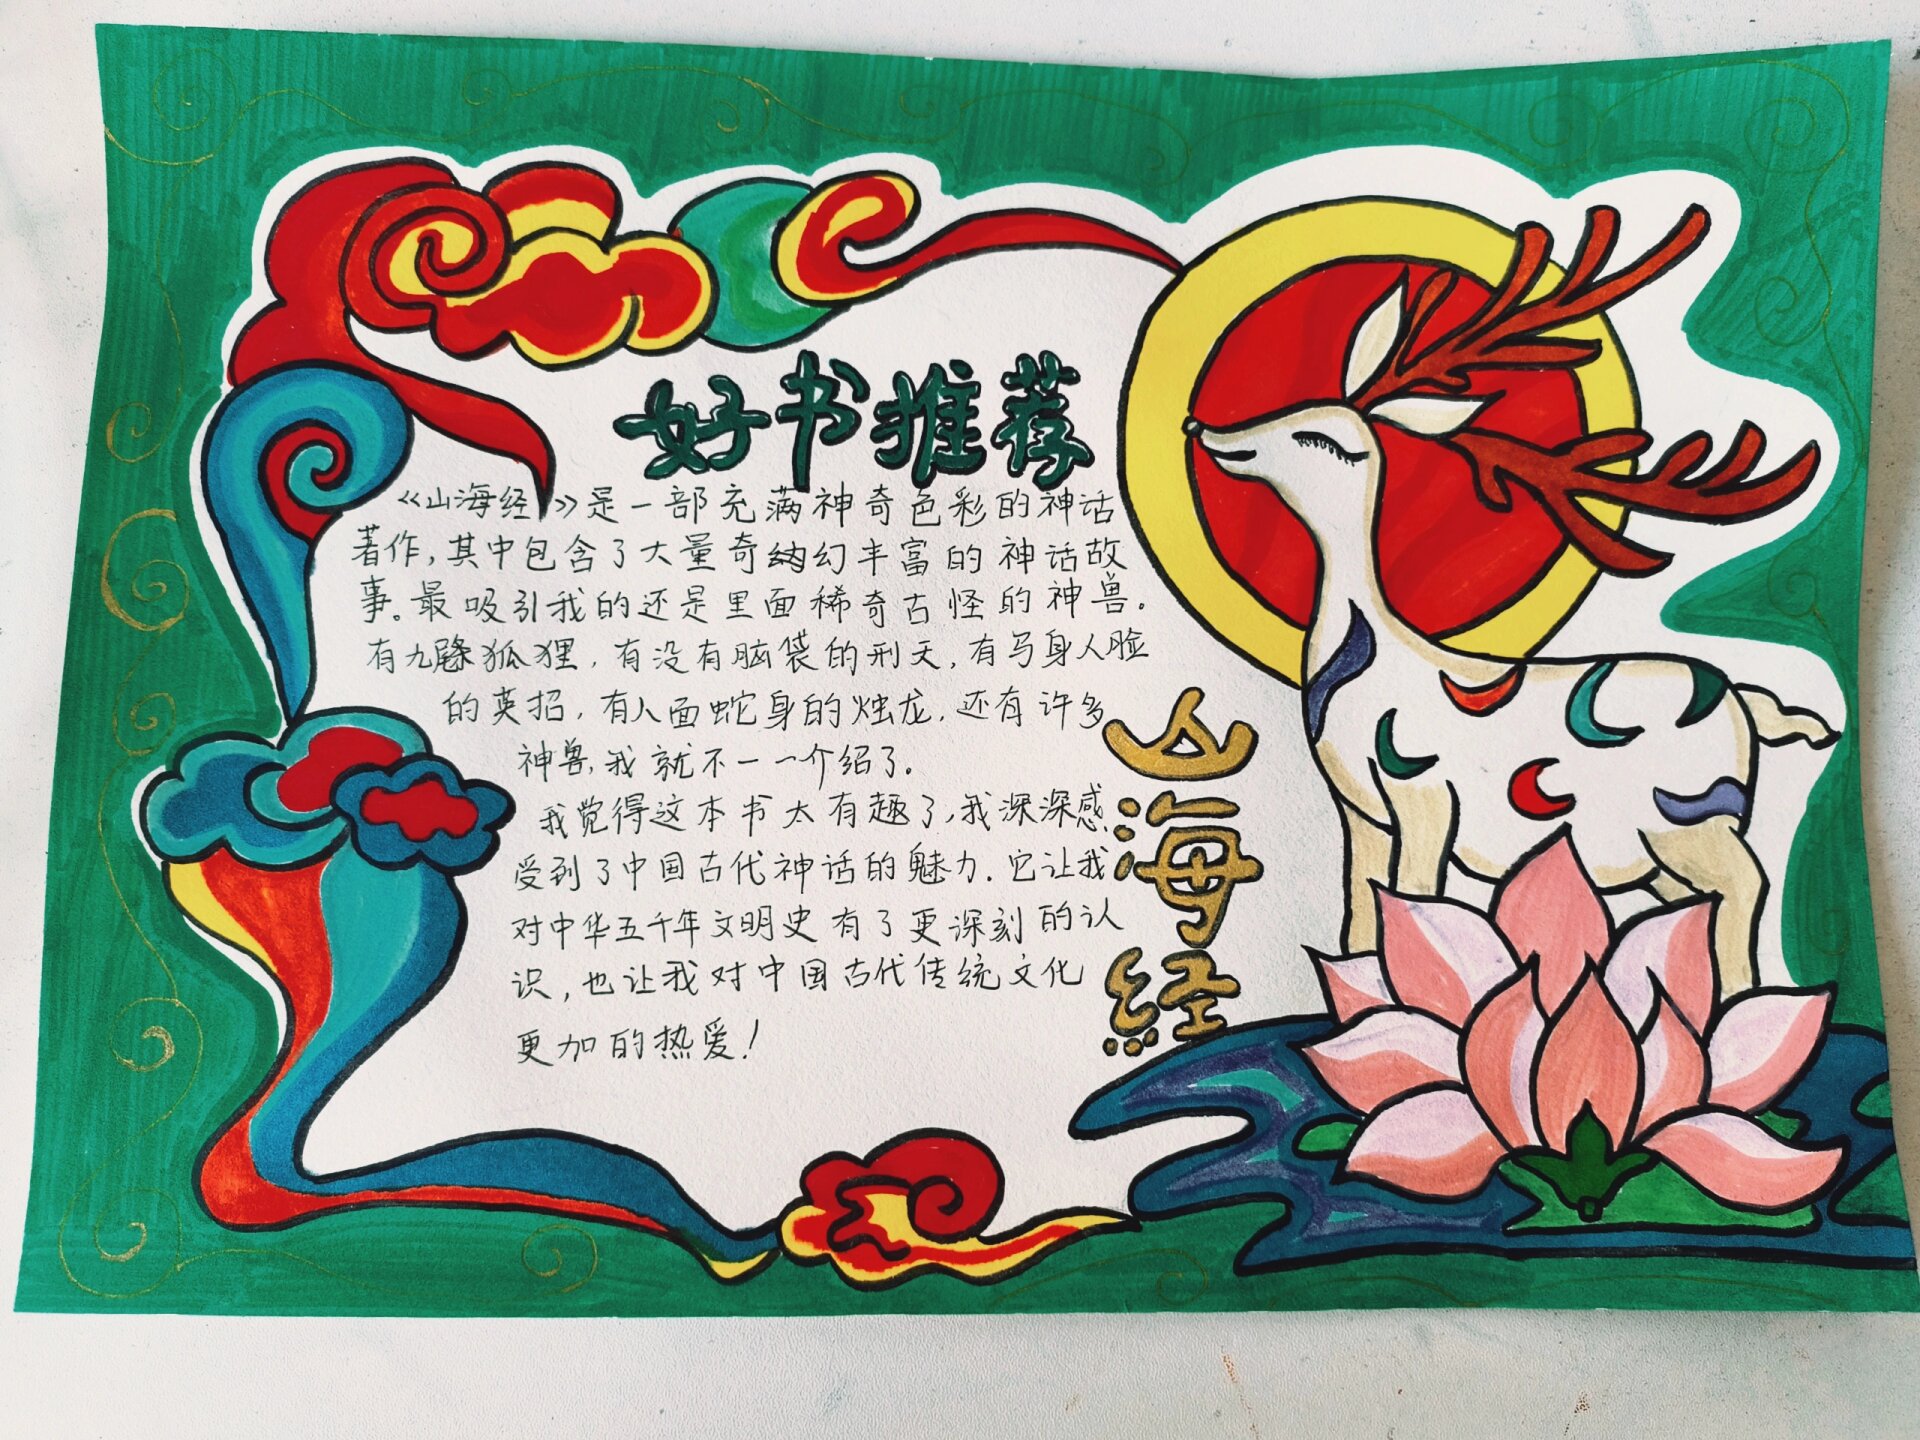 好书推荐
《山海经》是一部充满神奇色彩的神话
著作,其中包含了大量奇幻丰富的神话故
事。最吸引我的还是里面稀奇古怪的神兽。
有九尾狐狸,有没有脑袋的刑天,有马身人脸
的英招,有人面蛇身的烛龙,还有许多
神兽,我就不一一介绍了。
我觉得这本书太有趣了,我深深感
受到了中国古代神话的魅力.它让我
对中华五千年文明史有了更深刻的认
识,也让我对中国古代传统文化
更加的热爱!
山海经